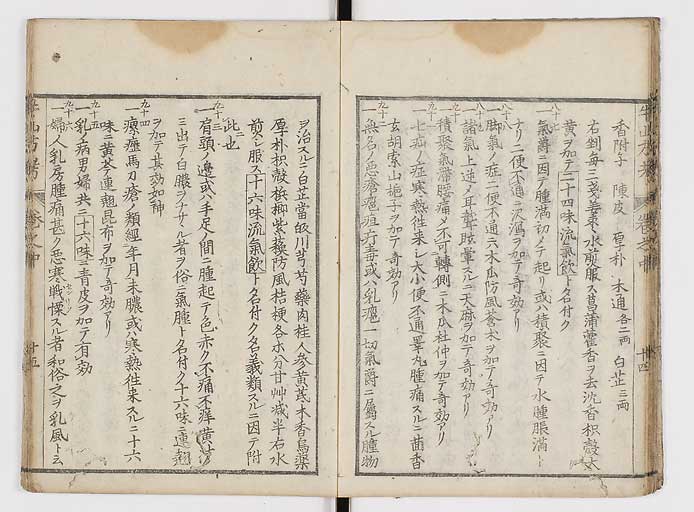 香附子 陳皮 厚朴 木通各二両 白芷三両
右剉毎三戔姜棗水煎服ス菖蒲藿香ヲ去沉香枳殻大
黄ヲ加テ二十四味流氣飲ト名付ク
一氣欝ニ因テ腫満切メテ起リ或ハ積聚ニ因テ水腫脹満ト
ナリ二便不通ニ沢瀉ヲ加テ奇効アリ
八十八
一脚氣ノ症二便不通六木瓜防風蒼木ヲ加テ奇効アリ
八十九
一諸氣上逆メ耳聾眩暈スルニ天麻ヲ加テ奇効アリ
九十
一積聚氣滞腰痛メ不可轉側ニ木瓜杜仲ヲ加テ奇効アリ
九十一
一七疝ノ症寒熱徃来シ大小便不通睪丸腫痛スルニ茴香
玄胡索山梔子ヲ加テ奇効アリ
九十二
一無名ノ悪瘡癰疽疔毒或ハ乳癰一切氣欝ニ屬スル腫物
ヲ治スルニ白芷當皈川芎芍藥肉桂人参黄芪木香烏藥
厚朴枳殻梹榔紫蘓防風桔梗各ホ分甘艸减半右水
煎シ服ス十六味流氣飲ト名付ク名義類スルニ因テ附
此ニ也
九十三
一肩頸ノ邊或ハ手足人間ニ腫起テ色赤ク不痛不痒
三出テ白膿ヲナサル者ヲ俗ニ氣腫ト名付ク十六味ニ連翹
ヲ加テ甚効如神
九十四
一瘰癧馬刀瘡ノ類經年月未膿或ハ寒熱徃来スルニ十六
味ニ黄芩連翹昆布ヲ加テ奇効アリ
九十五
一乳病男婦共ニ十六味ニ青皮ヲ加テ有効
九十六
一婦人乳房腫痛甚ク悪寒戦慄スル者和俗之ヲ乳風ト云
卷之中
廿四
卷之中
廿五